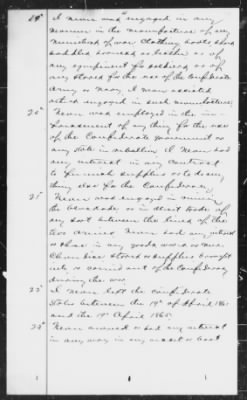 19" I never was engaged in any
manner in the manufacture of any
munitions of war Clothing boots shoes
saddles harness or leather or of
any equipment for soldiers or of
any stores for the use of the Confederate
Army or Navy I never assisted
others engaged in such manufacture;
20" Never was employed in the
of any thing for the use
of the Confederate government or
any state in rebellion I never had
any interest in any contract
to furnish supplies or to do any
thing else for the Confederacy
21" Never was engaged in running
the blockade or in illicit trade of
any sort between the lines of the
two armies Never had any interest
or share in any goods wares or mer
chandise stores or supplies brought
into or carried out of the Confederacy
during the war
22" I never left the Confederate
States between the 19" of April 1861
and the 19" April 1865
23" Never owned or had any interest
in any way in any vessel or boat